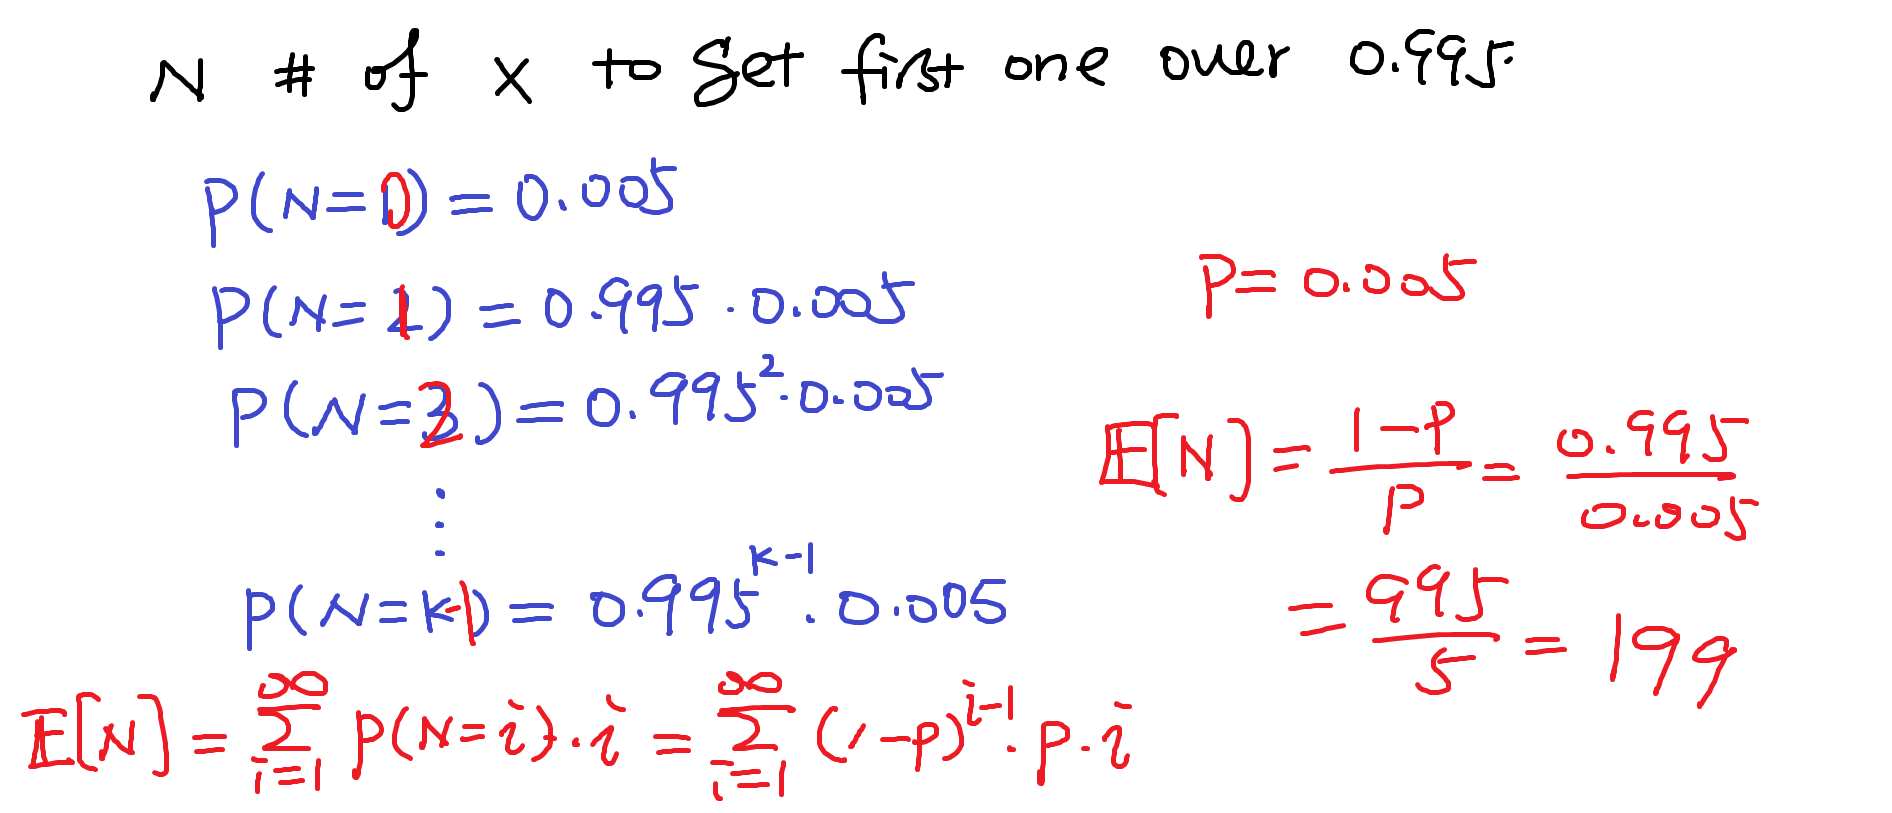 N # of x to get first one over 0.995
P(N=0) = 0.005
P(N=1) = 0.995 · 0.005
P(N=2) = 0.995² · 0.005
⋮
P(N=k-1) = 0.995^{k-1} · 0.005
E[N] = ∑_{i=1}^{∞} P(N=i)·i = ∑_{i=1}^{∞} (1-p)^{i-1} · p · i
P = 0.005
E[N] = \frac{1-P}{P} = \frac{0.995}{0.005}
= \frac{995}{5} = 199